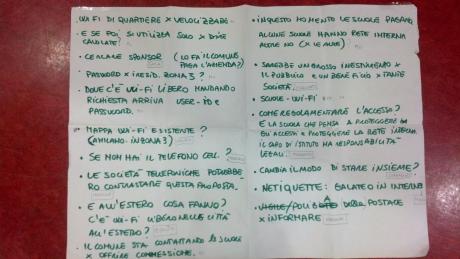 • WI-FI DI QUARTIERE X VELOCIZZARE.
• E SE POI SI UTILIZZA SOLO X
• CERCARE SPONSOR (LO FA IL COMUNE
PAGA L'AZIENDA?)
• PASSWORD X RESID. ZONA 3?
• DOVE C'È WI-FI LIBERO MANDANDO
RICHIESTA ARRIVA USER-ID E
PASSWORD.
• MAPPA WI-FI ESISTENTE?
(A MILANO - IN ZONA 3)
• SE NON HAI IL TELEFONO CELL.?
• LE SOCIETÀ TELEFONICHE POTREBBE
RO CONTRASTARE QUESTA PROPOSTA.
• E ALL'ESTERO COSA FANNO?
C'È WI-FI LIBERO NELLE CITTÀ
ALL'ESTERO?
• IL COMUNE STA CONTATTANDO LE SCUOLE
X OFFRIRE CONNESSIONE.
• IN QUESTO MOMENTO LE SCUOLE PAGANO
ALCUNE SCUOLE HANNO RETE INTERNA
ALTRE NO (X LE AULE)
• SAREBBE UN GROSSO INVESTIMENTO X
IL PUBBLICO E UN BENEFICIO X TANTE
SOCIETÀ.
• SCUOLE - WI-FI
• COME REGOLAMENTARE L'ACCESSO?
È LA SCUOLA CHE PENSA A PROTEGGERE
GLI ACCESSI E PROTEGGERE LA RETE INTERNA
IL CAPO DI ISTITUTO HA RESPONSABILITÀ
LEGALI.
• CAMBIA IL MODO DI STARE INSIEME?
• NETIQUETTE: GALATEO IN INTERNET
• POLIZIA POSTALE
X INFORMARE